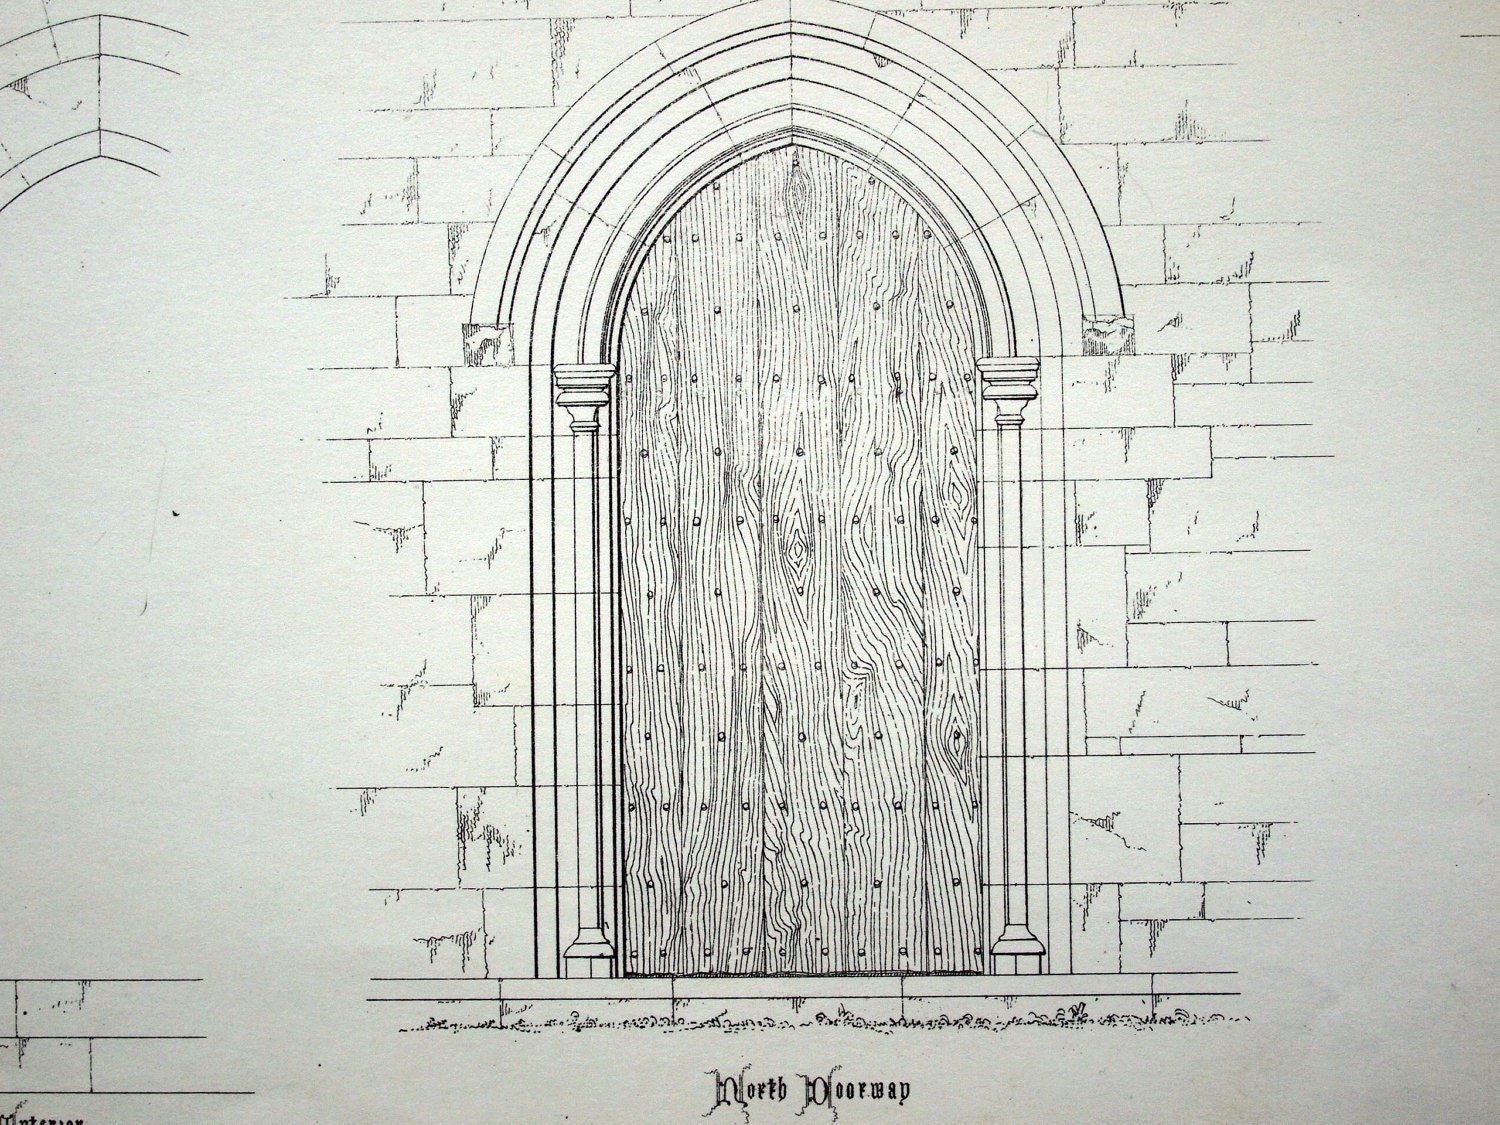 North Doorway
Interior